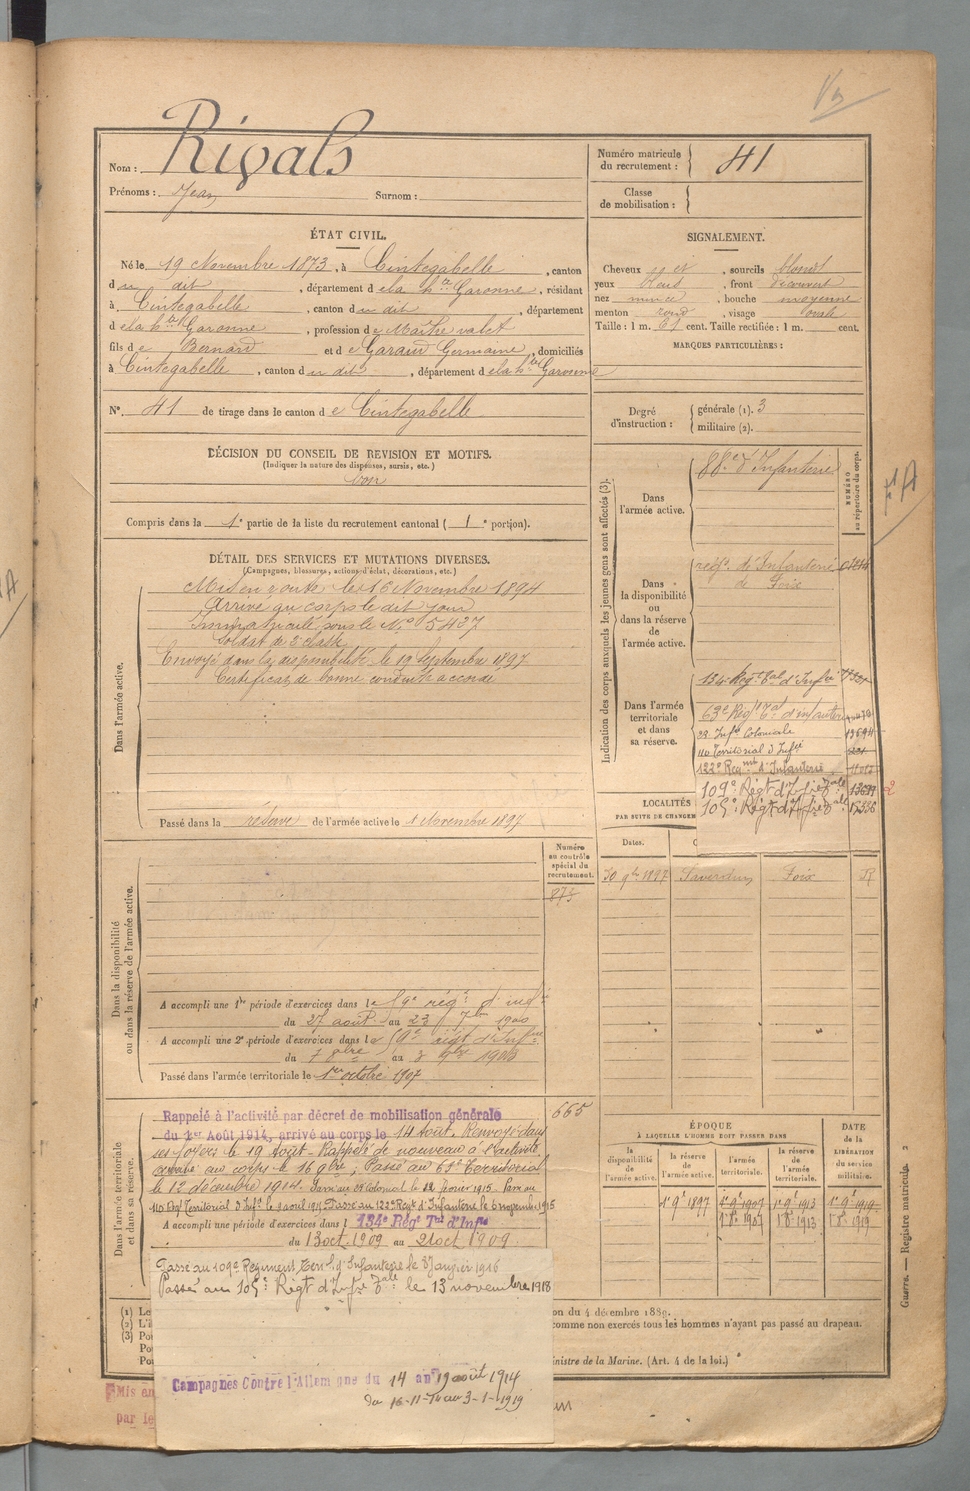 Nom : Rivals
Prénoms : Jean Surnom :
Numéro matricule du recrutement : 41
Classe de mobilisation :
ÉTAT CIVIL.
Né le 19 Novembre 1873, à Cintegabelle, canton
du dit, département de la hte Garonne, résidant
à Cintegabelle, canton du dit, département
de la hte Garonne, profession de Maître valet
fils de Bernard et de Garaud Germaine, domiciliés
à Cintegabelle, canton du dit, département de la hte Garonne
N°. 41 de tirage dans le canton de Cintegabelle
SIGNALEMENT.
Cheveux et sourcils blonds
yeux , front découvert
nez mince, bouche moyenne
menton rond, visage ovale
Taille : 1 m. 61 cent. Taille rectifiée : 1 m. cent.
MARQUES PARTICULIÈRES :
Degré d'instruction : générale (1). 3
militaire (2).
DÉCISION DU CONSEIL DE REVISION ET MOTIFS.
(Indiquer la nature des dispenses, sursis, etc.)
bon
Compris dans la 1e partie de la liste du recrutement cantonal ( 1e portion).
DÉTAIL DES SERVICES ET MUTATIONS DIVERSES.
(Campagnes, blessures, actions d'éclat, décorations, etc.)
Dans l'armée active.
Mis en route le 16 Novembre 1894
Arrivé au corps le dit jour
Immatriculé sous le N° 5437
Soldat de 2e classe
Envoyé dans la disponibilité le 19 Septembre 1897
Certificat de bonne conduite accordé
Passé dans la réserve de l'armée active le 1 Novembre 1897
Indication des corps auxquels les jeunes gens sont affectés (3).
NUMÉRO au répertoire du corps.
Dans l'armée active.
88e d'Infanterie
Dans la disponibilité ou dans la réserve de l'armée active.
régt. d'Infanterie
de Foix
Dans l'armée territoriale et dans sa réserve.
134e Régt Tal d'Infie
63e Régt Tal d'infanterie
Infie Coloniale
110 Territorial d'Infie
122e Regmt d'Infanterie
109e Régt d'Infie Tale
105e Régt d'Infie Tale
LOCALITÉS
PAR SUITE DE CHANGEM
Dates.
30 9bre 1897 Saverdun Foix R
Dans la disponibilité ou dans la réserve de l'armée active.
Numéro au contrôle spécial du recrutement.
875
A accompli une 1re période d'exercices dans le 59e régt d'infie
du 27 août au 23 7bre 1900
A accompli une 2e période d'exercices dans le 59e régt d'Infie
du 7 8bre au 3 9bre 1903
Passé dans l'armée territoriale le 1er octobre 1907
Dans l'armée territoriale et dans sa réserve.
665
Rappelé à l'activité par décret de mobilisation générale
du 1er Août 1914, arrivé au corps le 14 Août. Renvoyé dans
ses foyers le 19 Août. Rappelé de nouveau à l'activité,
arrivé au corps le 16 9bre, Passé au 63e Territorial
le 12 décembre 1914. Passé au Colonial le février 1915. Passé au
110 Régt Territorial d'Infie le 9 avril 1915. Passé au 122e Régt d'Infanterie le 6 novembre 1915
A accompli une période d'exercices dans l 134e Régt Tal d'Infie
du 13 oct. 1909 au 21 oct 1909.
Passé au 109e Régiment Terri. d'Infanterie le 8 Janvier 1916
Passé au 105e Régt d'Infie Tale le 13 novembre 1918
Campagnes Contre l'Allemagne du 14 au 19 août 1914
du 16-11-14 au 3-1-1919
ÉPOQUE
À LAQUELLE L'HOMME DOIT PASSER DANS
la disponibilité de l'armée active.
la réserve de l'armée active.
l'armée territoriale.
la réserve de l'armée territoriale.
DATE de la LIBÉRATION du service militaire.
1er 9bre 1897 1er 9bre 1907 1er 9bre 1913 1er 9bre 1919
1er 8bre 1907 1er 8bre 1913 1er 8bre 1919
Guerre. — Registre matricule. 2
(1) Le
(2) L'i
(3) Pou
Pou
Pou
on du 4 décembre 1889.
comme non exercés tous les hommes n'ayant pas passé au drapeau.
inistre de la Marine. (Art. 4 de la loi.)
Mis en
par le